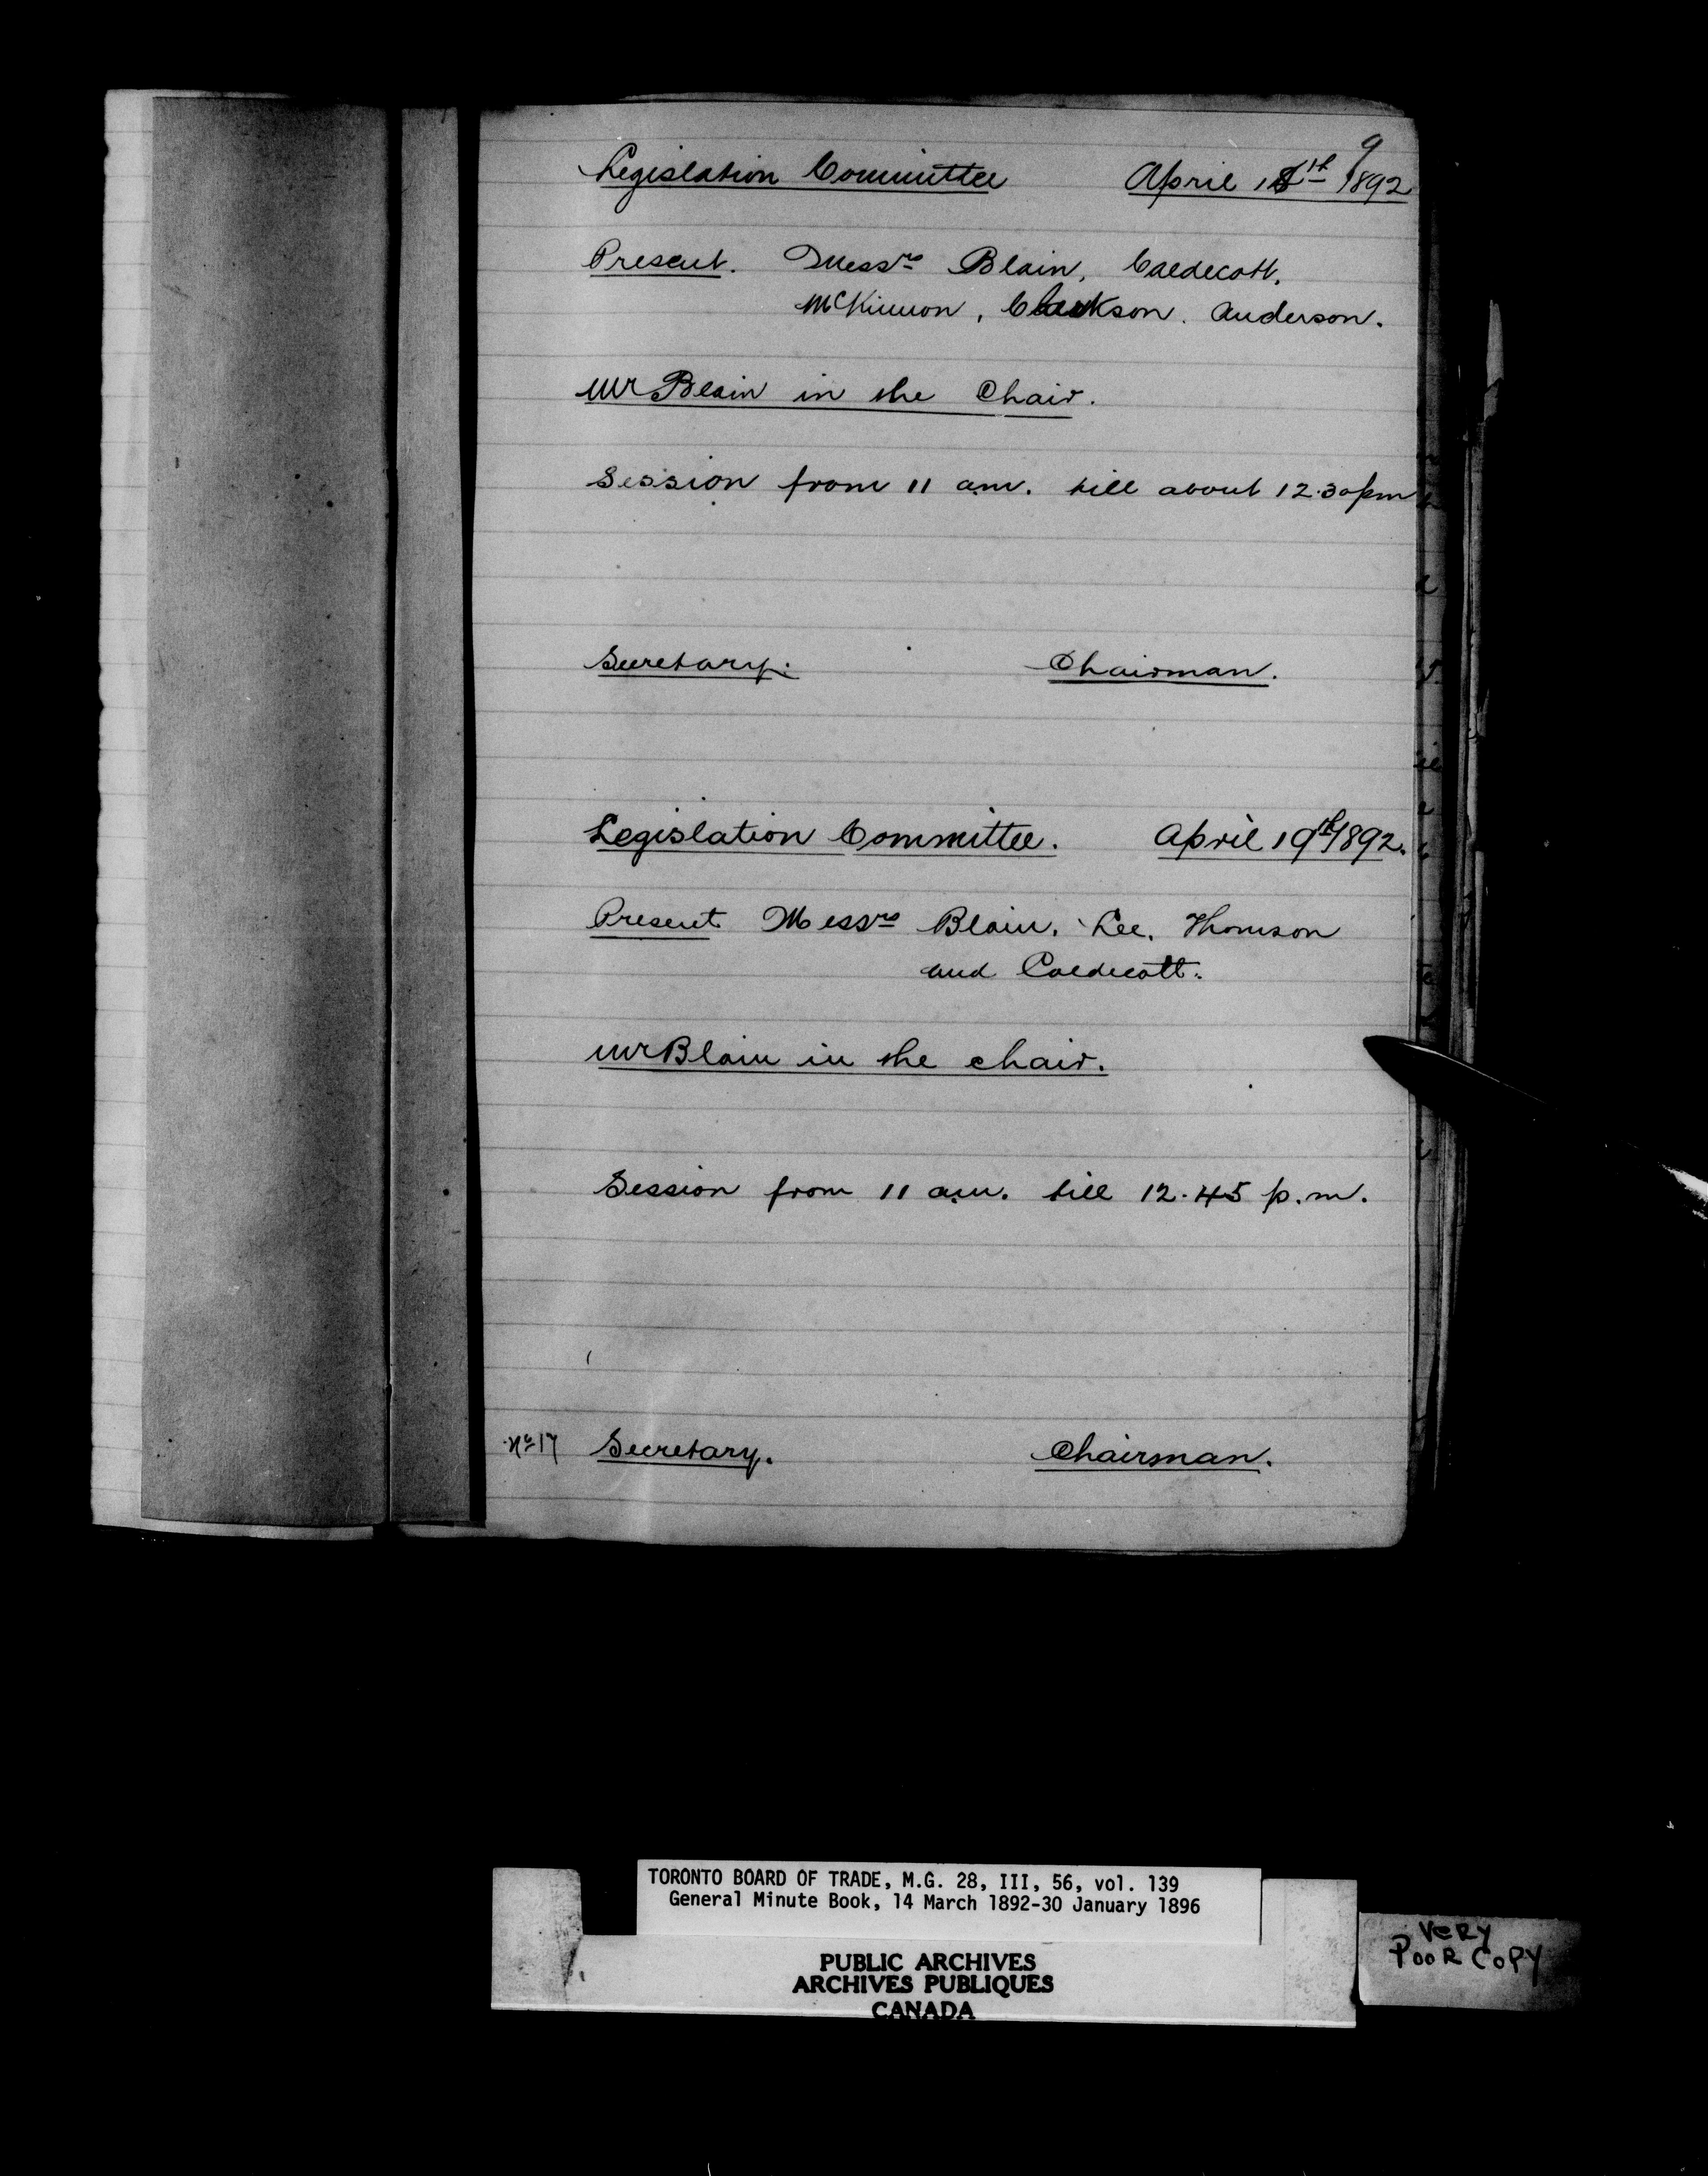 9
Legislation Committee April 18th 1892
Present. Messrs Blain, Caldecott,
McKinnon, Clarkson. Anderson.
Mr Blain in the Chair.
Session from 11 am. till about 12.30pm
Secretary. Chairman.
Legislation Committee. April 19th 1892.
Present Messrs Blain, Lee, Thomson
and Caldecott.
Mr Blain in the chair.
Session from 11 a.m. till 12.45 p.m.
No 17 Secretary. Chairman.
TORONTO BOARD OF TRADE, M.G. 28, III, 56, vol. 139
General Minute Book, 14 March 1892-30 January 1896
PUBLIC ARCHIVES
ARCHIVES PUBLIQUES
CANADA
VERY
POOR COPY